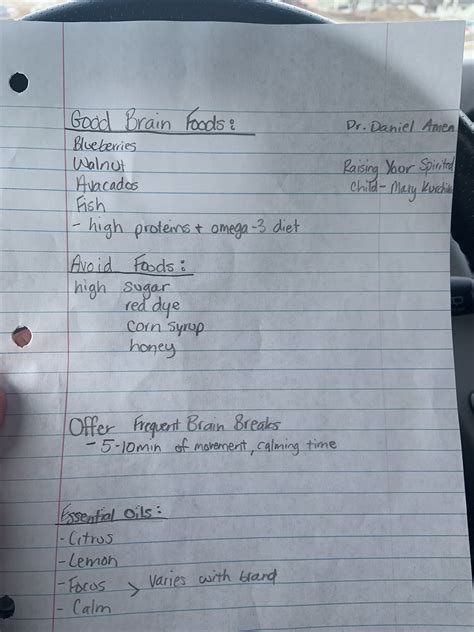 Good Brain Foods:
Dr. Daniel Amen
Blueberries
Walnut
Raising Your Spirited
Avacados
Child - Mary
Fish
- high proteins + omega-3 diet
Avoid Foods:
high sugar
red dye
corn syrup
honey
Offer Frequent Brain Breaks
- 5-10min of movement, calming time
Essential Oils:
- Citrus
- Lemon
- Focus > varies with brand
- Calm